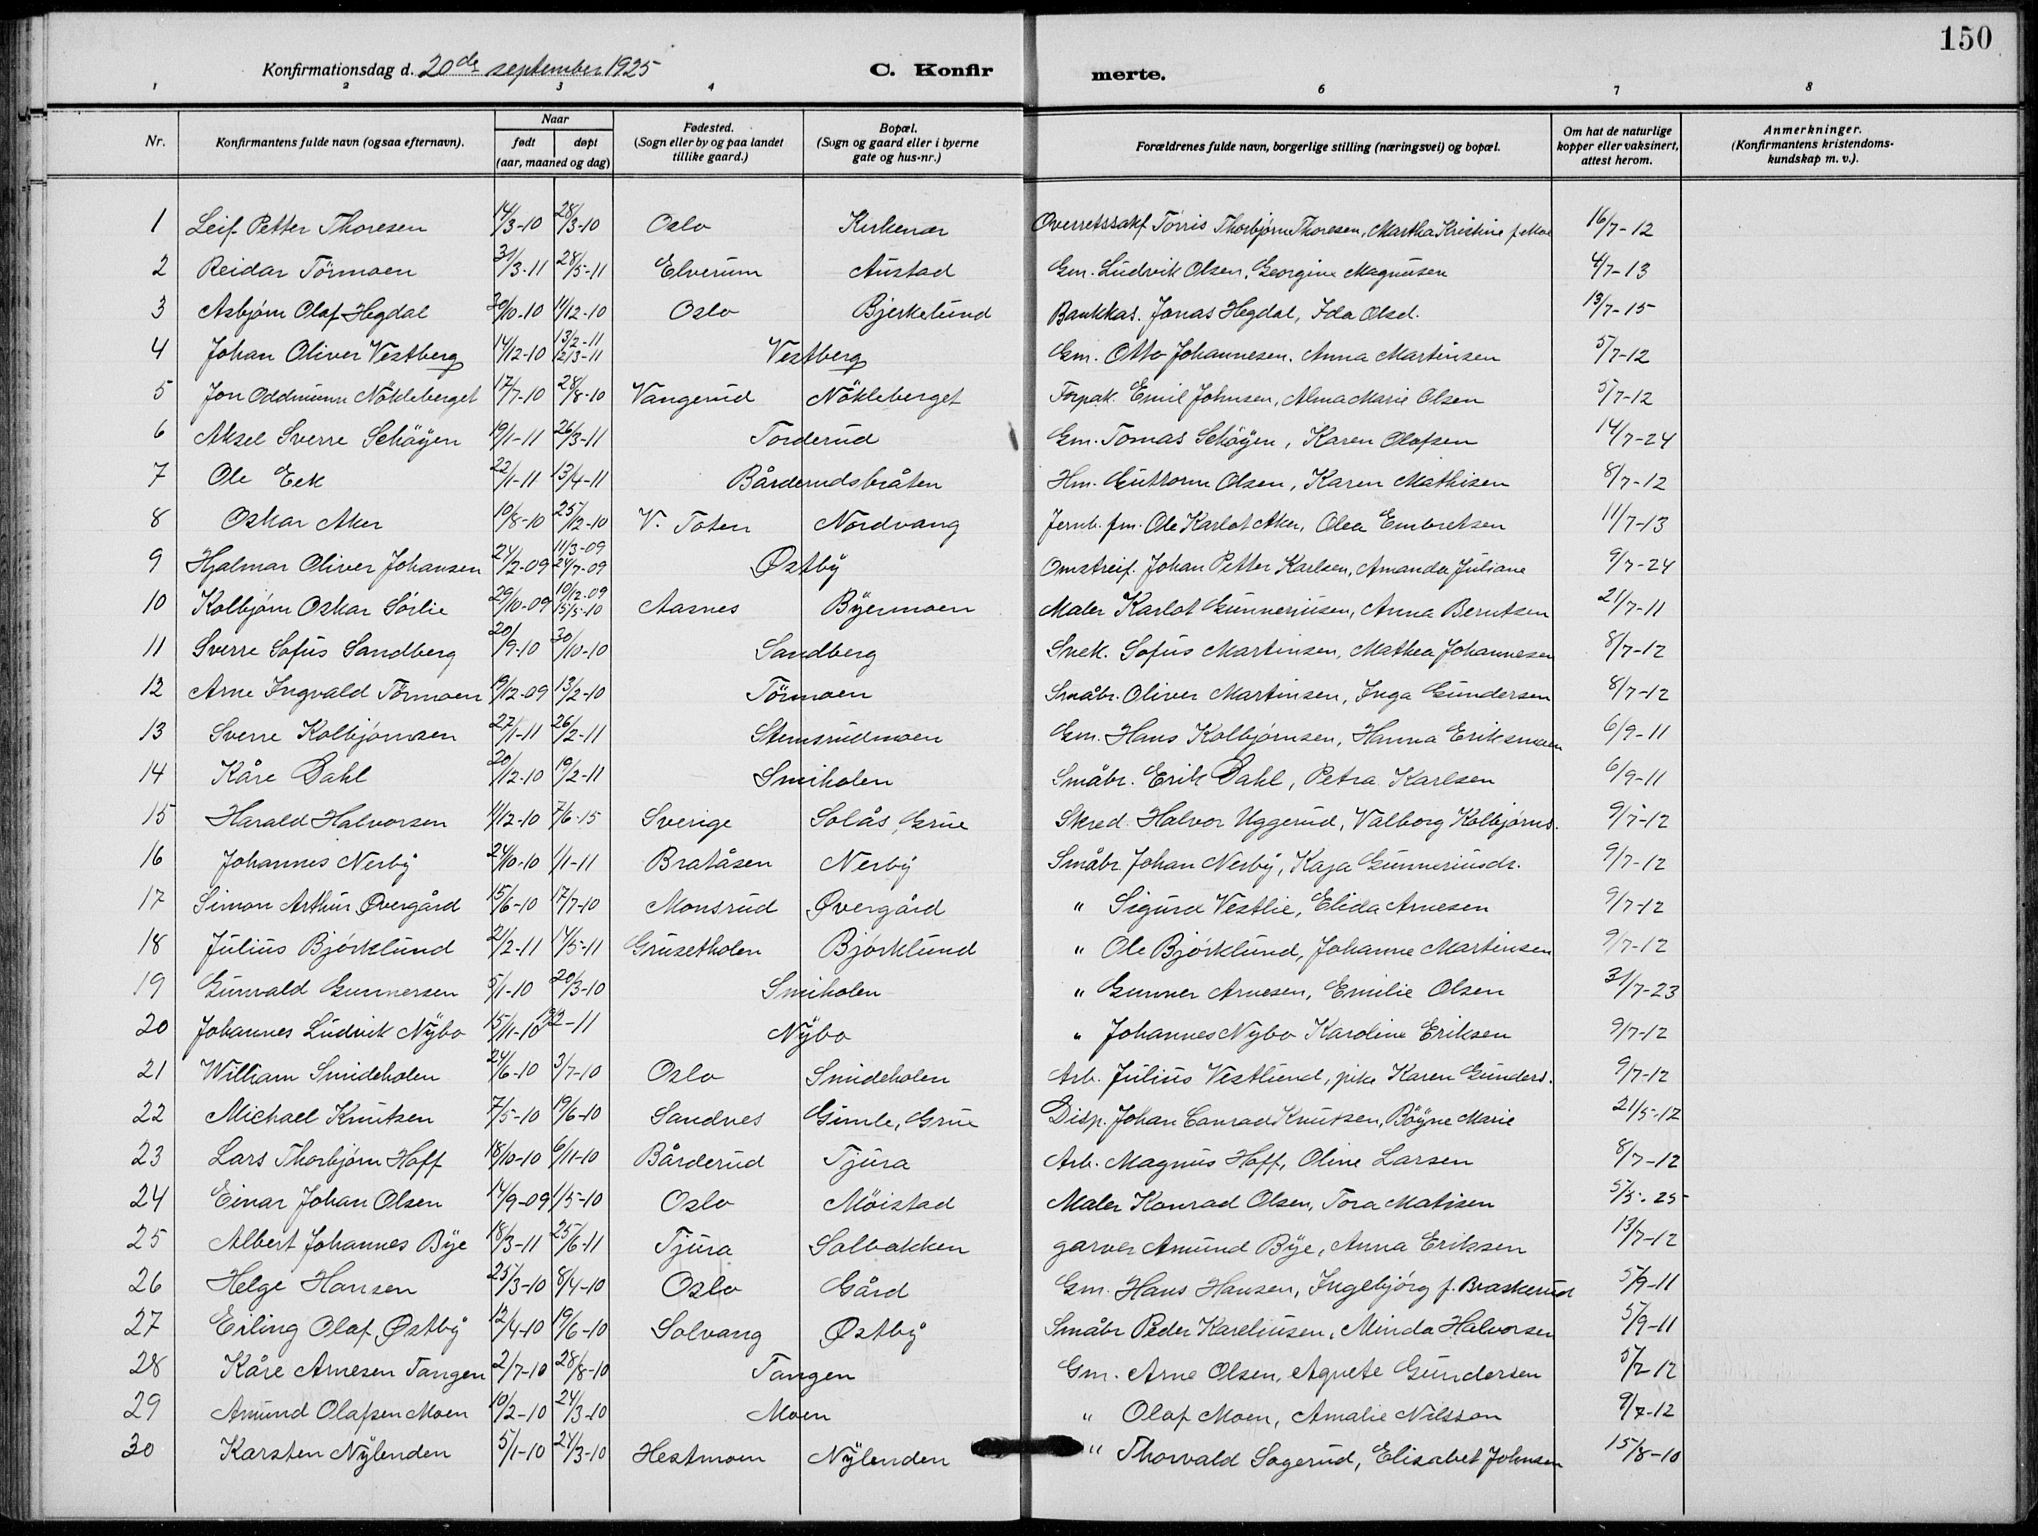 150
Konfirmationsdag d. 20de september 1925 C. Konfirmerte.
1 2 3 4 6 7 8
Nr. Konfirmantens fulde navn (ogsaa efternavn). Naar født døpt (aar, maaned og dag) Fødested. (Sogn eller by og paa landet tillike gaard.) Bopæl. (Sogn og gaard eller i byerne gate og hus-nr.) Forældrenes fulde navn, borgerlige stilling (næringsvei) og bopæl. Om hat de naturlige kopper eller vaksinert, attest herom. Anmerkninger. (Konfirmantens kristendoms- kundskap m. v.).
1 Leif Petter Thoresen 14/3-10 28/3-10 Oslo Kirkenær Overretssakf. Tørris Thorbjørn Thoresen, Martha Kristine f. Moe 16/7-12
2 Reidar Törmoen 31/3-11 28/5-11 Elverum Austad Gm. Ludvik Olsen, Georgine Magnusen 4/7-13
3 Asbjørn Olaf Hegdal 30/10-10 11/12-10 Oslo Bjerkelund Bankkas. Jonas Hegdal, Ida Olsd. 13/7-15
4 Johan Oliver Vestberg 14/12-10 13/2-11 12/3-11 Vestberg Gm. Otto Johannesen, Anna Martinsen 5/7-12
5 Jon Oddmunn Nökleberget 17/7-10 28/8-10 Vangerud Nökleberget Forpak. Emil Johnsen, Alma Marie Olsen 5/7-12
6 Aksel Sverre Schöyen 19/1-11 26/3-11 Torderud Gm. Tomas Schöyen, Karen Olafsen 14/7-24
7 Ole Eek 22/1-11 13/4-11 Bårderudsbråten Hm. Guttorm Olsen, Karen Mathisen 8/7-12
8 Oskar Aker 10/8-10 25/12-10 V. Toten Nordvang Jernb. fm. Ole Karlot Aker, Olea Embretsen 11/7-13
9 Hjalmar Oliver Johansen 24/2-09 11/3-09 24/7-09 Østby Omstreif. Johan Petter Karlsen, Amanda Juliane 9/7-24
10 Kolbjørn Oskar Sörlie 29/10-09 10/12-09 15/5-10 Aasnes Byermoen Maler Karlot Gunneriusen, Anna Berntsen 21/7-11
11 Sverre Sofus Sandberg 20/9-10 30/10-10 Sandberg Snek. Sofus Martinsen, Mathea Johannesen 8/7-12
12 Arne Ingvald Törmoen 19/12-09 13/2-10 Törmoen Småbr. Oliver Martinsen, Inga Gundersen 8/7-12
13 Sverre Kolbjørnsen 27/1-11 26/2-11 Stemsrudmoen Gm. Hans Kolbjørnsen, Hanna Eriksmoen 6/9-11
14 Kåre Dahl 20/12-10 19/2-11 Smiholen Småbr. Erik Dahl, Petra Karlsen 6/9-11
15 Harald Halvorsen 11/12-10 7/6-15 Sverige Solås, Grue Skred. Halvor Uggerud, Valborg Kolbjørns. 9/7-12
16 Johannes Nerby 24/10-10 1/1-11 Bratåsen Nerby Småbr. Johan Nerby, Kaja Gunneriusdr. 9/7-12
17 Simon Arthur Øvergård 15/6-10 17/7-10 Monsrud Øvergård " Sigurd Vestlie, Elida Arnesen 9/7-12
18 Julius Bjørklund 21/2-11 14/5-11 Grusetholen Bjørklund " Ole Bjørklund, Johanne Martinsen 9/7-12
19 Gunvald Gunnersen 5/1-10 20/3-10 Smiholen " Gunner Arnesen, Emilie Olsen 31/7-23
20 Johannes Ludvik Nybo 15/11-10 12/2-11 Nybo " Johannes Nybo Karoline Eriksen 9/7-12
21 William Smideholen 24/6-10 3/7-10 Oslo Smideholen Arb. Julius Vestlund, pike Karen Gunders. 9/7-12
22 Michael Knutsen 7/5-10 19/6-10 Sandnes Gimle, Grue Disp. Johan Conrad Knutsen, Böyne Marie 21/5-17
23 Lars Thorbjørn Hoff 18/10-10 6/11-10 Bårderud Tjura Arb. Magnus Hoff, Oline Larsen 8/7-12
24 Einar Johan Olsen 14/9-09 1/5-10 Oslo Möistad Maler Konrad Olsen, Tora Matisen 5/5-25
25 Albert Johannes Bye 18/3-11 25/6-11 Tjura Solbakken garver Amund Bye, Anna Eriksen 13/7-12
26 Helge Hansen 25/3-10 8/4-10 Oslo Gård Gm. Hans Hansen, Ingebjörg f. Braskerud 5/9-11
27 Erling Olaf Østby 12/4-10 19/6-10 Solvang Østby Småbr Peder Kareliusen, Minda Halvorsen 5/9-11
28 Kåre Arnesen Tangen 2/7-10 28/8-10 Tangen Gm. Arne Olsen, Agnete Gundersen 5/7-12
29 Amund Olafsen Moen 10/2-10 24/3-10 Moen " Olaf Moen, Amalie Nilsson 9/7-12
30 Karsten Nylenden 5/1-10 24/3-10 Hestmoen Nylenden " Thorvald Sagerud, Elisabet Johnsen 15/8-10